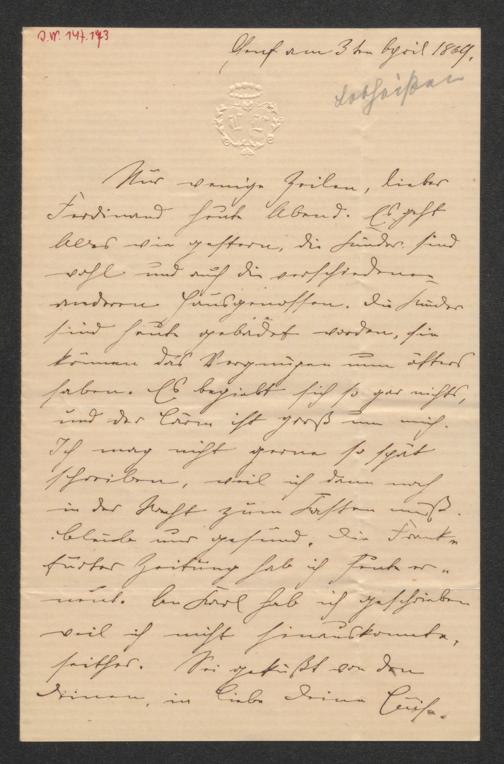 J.N. 147.193
Genf am 3ten April 1869.
Lotheißen
Nur wenige Zeilen, lieber
Ferdinand heute Abend. Es geht
Alles wie gestern, die Kinder sind
wohl und auch die verschiedenen
anderen Hausgenossen. Die Kinder
sind heute gebadet worden, sie
können das Vergnügen nun öfters
haben. Es begiebt sich so gar nichts,
und der Lärm ist groß um mich.
Ich mag nicht gerne so spät
schreiben, weil ich dann noch
in der Nacht zum Kasten muß.
Bleibe nur gesund. Die Frank-
furter Zeitung hab ich heute er-
neut. An Karl hab ich geschrieben
weil ich nicht hinauskonnte,
seither. Sei geküßt von den
Deinen, in Liebe Deine Luise.